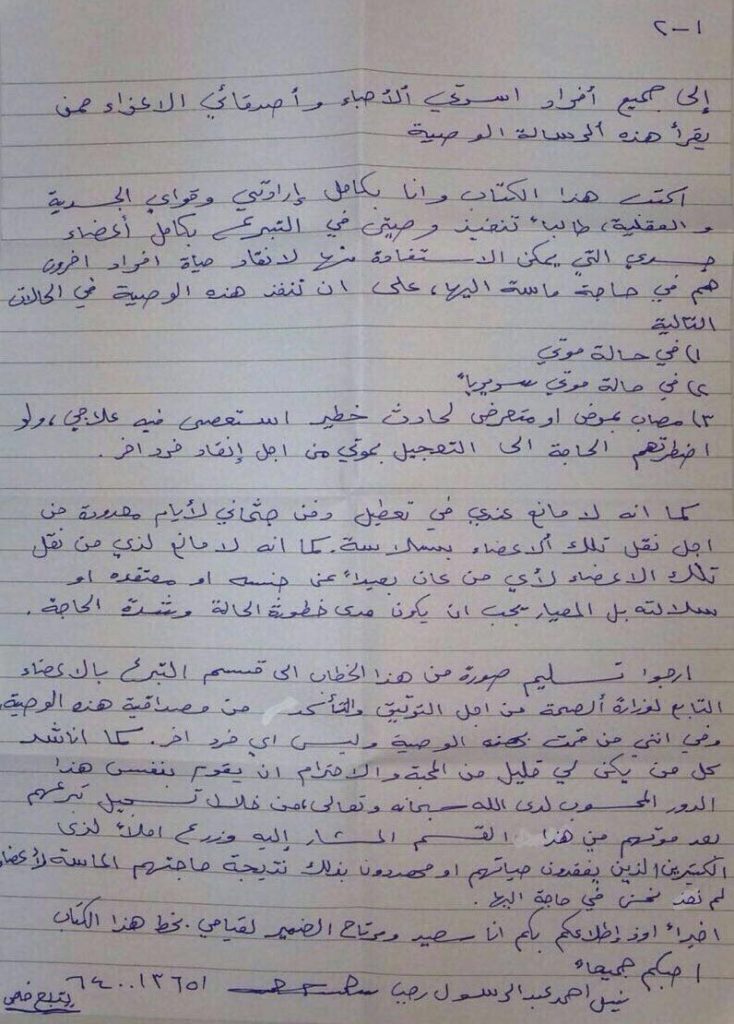 ١-٢
إلى جميع أفراد اسرتي الأحباء وأصدقائي الاعزاء ممن
يقرأ هذه الرسالة الوصية
اكتب هذا الكتاب وانا بكامل إرادتي وقواي الجسدية
والعقلية، طالباً تنفيذ وصيتي في التبرع بكامل أعضاء
جسدي التي يمكن الاستفادة منها لانقاد حياة افراد اخرون
هم في حاجة ماسة اليها، على ان تنفذ هذه الوصية في الحالات
التالية
١) في حالة موتي
٢) في حالة موتي سريرياً
٣) مصاب بمرض او متعرض لحادث خطير استعصى فيه علاجي، ولو
اضطرتهم الحاجة الى التعجيل بموتي من اجل إنقاد فرد اخر.
كما انه لا مانع عندي في تعطيل دفن جثماني لأيام معدودة من
اجل نقل تلك الاعضاء بسلاسة. كما انه لا مانع لذي من نقل
تلك الاعضاء لأي من كان بعيداً عن جنسه او معتقده او
سلالته بل المعيار يجب ان يكون مدى خطورة الحالة وشدة الحاجة.
ارجوا تسليم صورة من هذا الخطاب الى قسم التبرع بالاعضاء
التابع لوزارة الصحة من اجل التوثيق والتأكد من مصداقية هذه الوصية
وفي انني من قمت بهذه الوصية وليس اي فرد اخر. كما اناشد
كل من يكن لي قليل من المحبة والاحترام ان يقوم بنفس هذا
الدور المحسوب لدى الله سبحانه وتعالى، من خلال تسجيل تبرعهم
بعد موتهم في هذا القسم المشار إليه وزرع املاً لذى
الكثيرين الذين يفقدون حياتهم او مهددون بذلك نتيجة حاجتهم الماسة لأعضاء
لم نعد نحن في حاجة اليها.
اخيراً اود إطلاعكم بكم انا سعيد ومرتاح الضمير لقيامي بخط هذا الكتاب
احبكم جميعاً
نبيل احمد عبدالرسول رجب ٦٤٠٠١٣٦٥١ يتبع